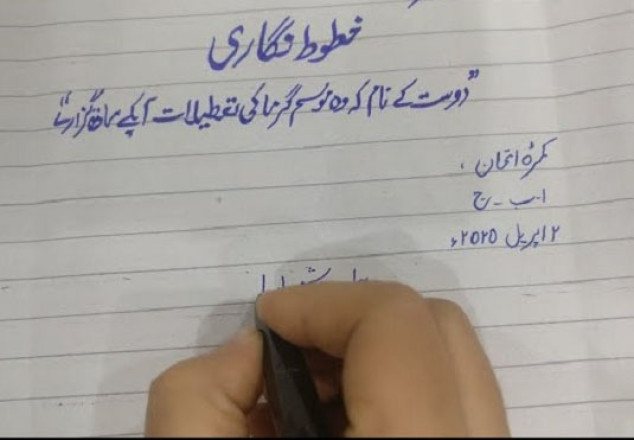 خطوط نگاری
"دوست کے نام کہ وہ موسم گرما کی تعطیلات آپکے ساتھ گزارے"
کمرۂ امتحان ،
ا۔ب ۔ ج
۲ اپریل ۲۰۲۰ء